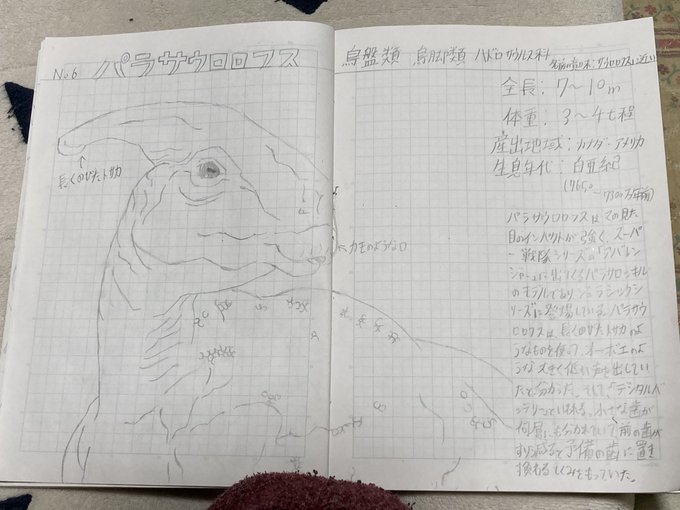 No6 パラサウロロフス
鳥盤類 鳥脚類 ハドロサウルス科
名前の意味:サウロロフスに近い
全長:7〜10m
体重:3〜4t程
産出地域:カナダ・アメリカ
生息年代:白亜紀
(7650〜7300万年前)
長くのびたトサカ
カモのような口
パラサウロロフスはその見た
目のインパクトが強く、スーパ
ー戦隊シリーズの「アバレン
ジャー」に出てくるパラサロッキル
のモデルであり、ジュラシックシ
リーズに登場している。パラサウ
ロロフスは、長くのびたトサカのよ
うなものを使って、オーボエのよ
うな大きく低い声を出してい
たと分かった。そして、「デンタルバ
ッテリー」といわれる、小さな歯が
何層にも分かれていて前の歯が
すり減ると予備の歯に置き
換わるしくみをもっていた。